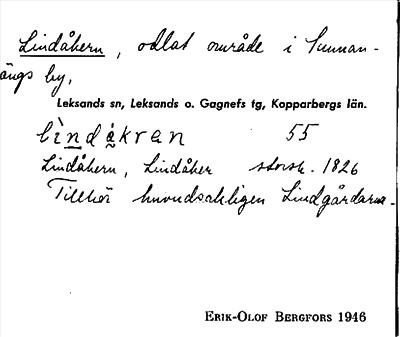 Lindåkern, odlat område i Sunnan-
ängs by,
Leksands sn, Leksands o. Gagnefs tg, Kopparbergs län.
lìndåkran 55
Lindåkern, Lindåker storsk. 1826
Tillhör huvudsakligen Lindgårdarna.
ERIK-OLOF BERGFORS 1946